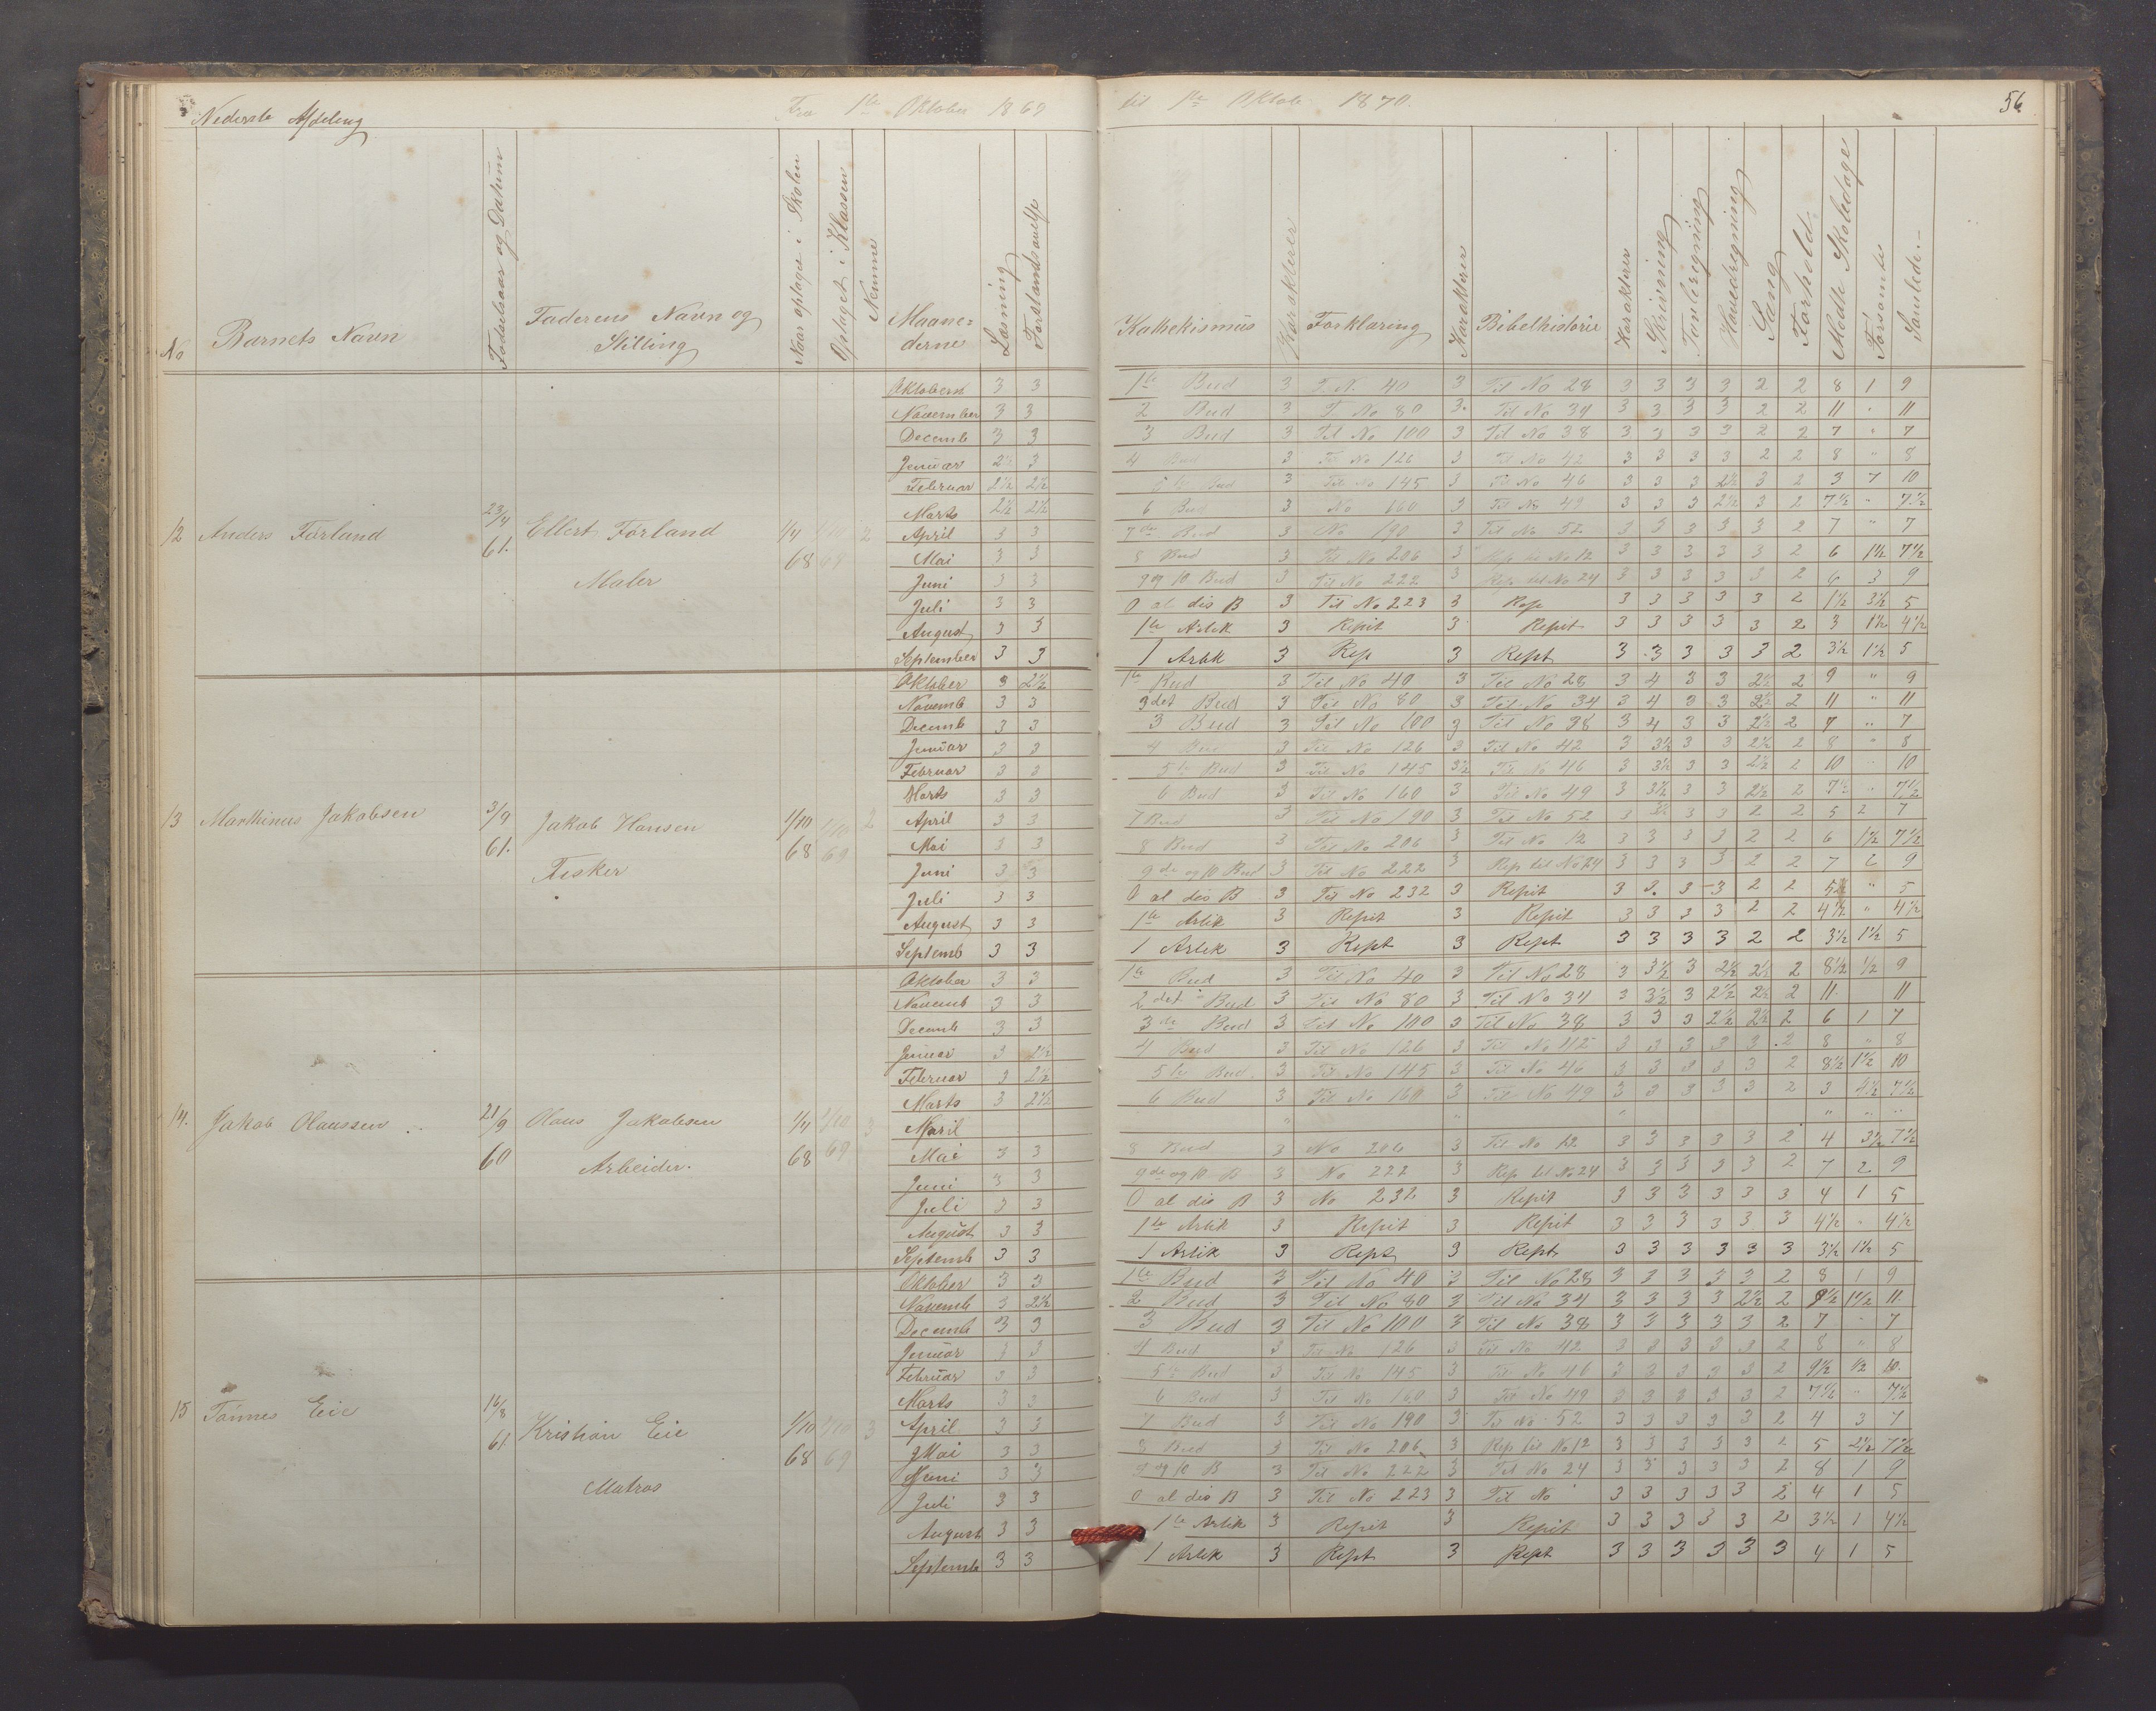 Nederste Afdeling Fra 1ste Oktober 1869 til 1ste Oktob. 1870. 56
No Barnets Navn Fødselsaar og Datum Faderens Navn og Stilling Naar optaget i Skolen Optaget i Klassen Nemme Maanederne Læsning Forstandsøvelse Kathekismus Karakterer Forklaring Karakterer Bibelhistorie Karakterer Skrivning Tavleregning Hovedregning Sang Forhold Mødte Skoledage Forsømte Samlede
12 Anders Førland 23/4 61. Ellert Førland Maler 1/4 68 1/10 69 2
Oktobern 3 3 1ste Bud 3 T. N. 40 3 Til No 28 3 3 3 3 2 2 8 1 9
November 3 3 2 Bud 3 T. No 80 3. Til No 34 3 3 3 3 2 2 11 " 11
Decemb 3 3 3 Bud 3 Til No 100 3 Til No 38 3 3 3 3 2 2 7 " 7
Januar 2½ 3 4 Bud 3 Til No 126 3 Til No 42 3 3 3 3 2 2 8 " 8
Februar 2½ 2½ 5te Bud 3 Til No 145 3 Til No 46 3 3 3 2½ 3 2 3 7 10
Marts 2½ 2½ 6 Bud 3 No 160 3 Til No 49 3 3 3 2½ 3 2 7½ " 7½
April 3 3 7de Bud 3 No 190 3 Til No 52 3 3 3 3 3 2 7 " 7
Mai 3 3 8 Bud 3 Til No 206 3 Rep til No 12 3 3 3 3 3 2 6 1½ 7½
Juni 3 3 9 og 10 Bud 3 Til No 222 3 Rep til No 24 3 3 3 3 3 2 6 3 9
Juli 3 3 O al dis B 3 Til No 223 3 Rep 3 3 3 3 3 2 1½ 3½ 5
August 3 3 1ste Artik 3 Repit 3 Repit 3 3 3 3 3 2 3 1½ 4½
September 3 3 1 Artik 3 Rep 3 Rept 3 3 3 3 3 2 3½ 1½ 5
13 Marthinus Jakobsen 3/9 61. Jakob Hansen Fisker 1/10 68 1/10 69 2
Oktober 3 2½ 1ste Bud 3 Til No 40 3 Til No 28 3 4 3 3 2½ 2 9 " 9
Novemb 3 3 2det Bud 3 Til No 80 3 Til No 34 3 4 3 3 2½ 2 11 " 11
Decemb 3 3 3 Bud 3 Til No 100 3 Til No 38 3 4 3 3 2½ 2 7 " 7
Januar 3 3 4 Bud 3 Til No 126 3 Til No 42 3 3½ 3 3 2½ 2 8 " 8
Februar 3 3 5te Bud 3 Til No 145 3½ Til No 46 3 3½ 3 3 2½ 2 10 10
Marts 3 3 6 Bud 3 Til No 160 3 Til No 49 3 3½ 3 3 2½ 2 7½ " 7½
April 3 3 7 Bud 3 Til No 190 3 Til No 52 3 3½ 3 3 2 2 5 2 7
Mai 3 3 8 Bud 3 Til No 206 3 Til No 12 3 3 3 3 2 2 6 1½ 7½
Juni 3 3 9de og 10 Bud 3 Til No 222 3 Rep til No 24 3 3 3 3 2 2 7 2 9
Juli 3 3 O al dis B 3 Til No 232 3 Repit 3 3. 3 3 2 2 5 " 5
August 3 3 1ste Artik 3 Repit 3 Repit 3 3 3 3 2 2 4½ " 4½
Septemb 3 3 1 Artik 3 Rept 3 Rept 3 3 3 3 2 2 3½ 1½ 5
14. Jakob Olaussen 21/9 60 Olaus Jakobsen Arbeider. 1/4 68 1/10 69 3
Oktober 3 3 1ste Bud 3 Til No 40 3 Til No 28 3 3½ 3 2½ 2½ 2 8½ ½ 9
Novemb 3 3 2det Bud 3 Til No 80 3 Til No 34 3 3½ 3 2½ 2½ 2 11 11
Decemb 3 3 3de Bud 3 Til No 100 3 Til No 38 3 3 3 2½ 2½ 2 6 1 7
Januar 3 2½ 4 Bud 3 Til No 126 3 Til No 42 3 3 3 3 3 2 8 " 8
Februar 3 2½ 5te Bud. 3 Til No 145 3 Til No 46 3 3 3 3 3 2 8½ 1½ 10
Marts 3 2½ 6 Bud 3 Til No 160 3 Til No 49 3 3 3 3 3 2 3 4½ 7½
April " " " " " "
Mai 3 3 8 Bud 3 No 206 3 Til No 12 3 3 3 3 3 2 4 3½ 7½
Juni 3 3 9de og 10 B 3 No 222 3 Rep til No 24 3 3 3 3 3 2 7 2 9
Juli 3 3 O al dis B 3 No 232 3 Repit 3 3 3 3 3 3 4 1 5
August 3 3 1ste Artik 3 Repit 3 Repit 3 3 3 3 3 3 4½ " 4½
Septemb 3 3 1 Artik 3 Rept 3 Rept 3 3 3 3 3 3 3½ 1½ 5
15 Tønnes Eie 16/8 61. Kristian Eie Matros 1/10 68 1/10 69 3
Oktober 3 3 1ste Bud 3 Til No 40 3 Til No 28 3 3 3 3 3 2 8 1 9
Novemb 3 2½ 2 Bud 3 Til No 80 3 Til No 34 3 3 3 3 2½ 2 9½ 1½ 11
Decemb 3 3 3 Bud 3 Til No 100 3 Til No 38 3 3 3 3 3 2 7 " 7
Januar 3 3 4 Bud 3 Til No 126 3 Til No 42 3 3 3 3 3 2 8 " 8
Februar 3 3 5te Bud 3 Til No 145 3 Til No 46 3 3 3 3 3 2 9½ ½ 10.
Marts 3 3 6 Bud 3 Til No 160 3 Til No 49 3 3 3 3 3 2 7½ " 7½
April 3 3 7 Bud 3 Til No 190 3 Til No 52 3 3 3 3 3 2 4 3 7
Mai 3 3 8 Bud 3 Til No 206 3 Rep til No 12 3 3 3 3 3 2 5 2½ 7½
Juni 3 3 9 og 10 B 3 Til No 222 3 Til No 24 3 3 3 3 3 2 8 1 9
Juli 3 3 O al dis B 3 Til No 223 3 Til No 3 3 3 3 3 2 4 1 5
August 3 3 1ste Artik 3 Repit 3 Repit 3 3 3 3 3 2 3½ 1 4½
Septemb 3 3 1 Artik 3 Rept 3 Rept 3 3 3 3 3 3 4 1 5